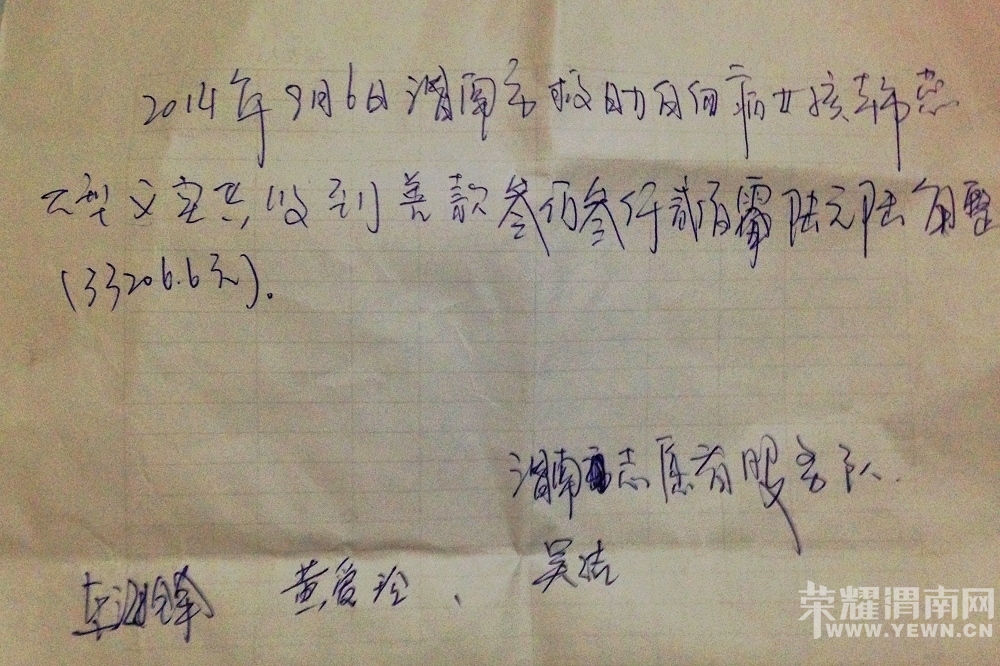 2014年9月6日渭南市救助白血病女孩韩蕊
大型义演共收到善款叁万叁仟贰佰零陆元陆角整
(33206.6元)。
渭南市志愿者服务队
黄爱玲、吴洁
荣耀渭南网
WWW.YEWN.CN